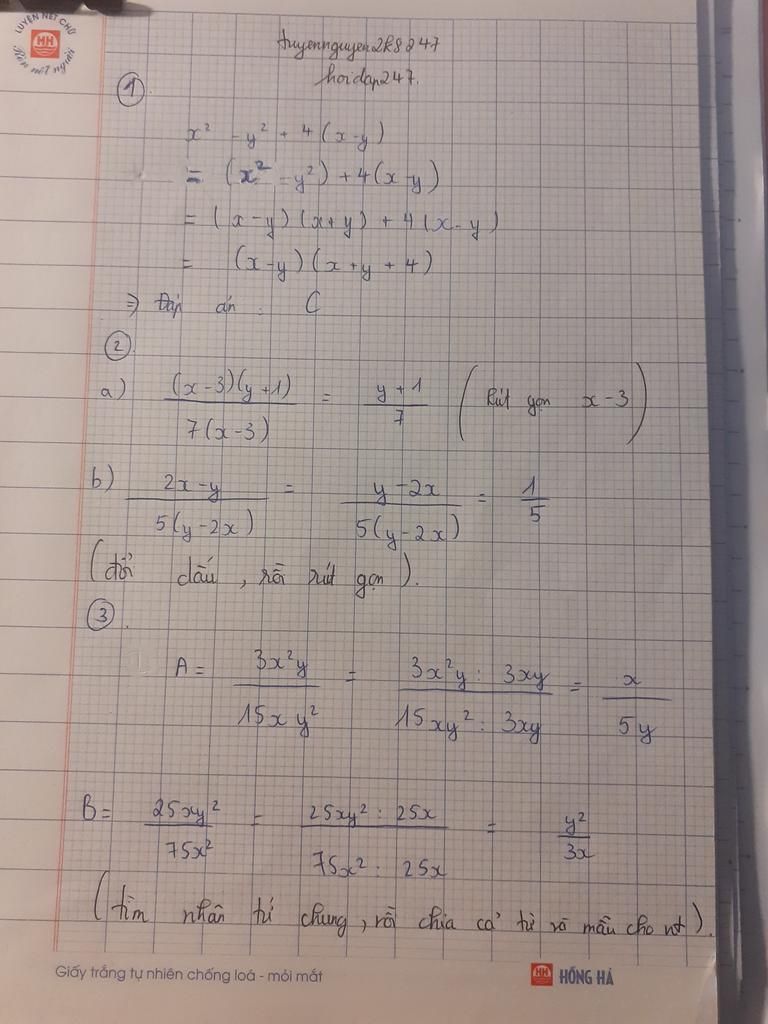 LUYỆN NÉT CHỮ
HH
Rèn nết người
truyennguyen2k8247
hoidap247.
1
x² - y² + 4(x-y)
= (x² - y²) + 4(x-y)
= (x-y)(x+y) + 4(x-y)
= (x-y)(x+y+4)
=> Đáp án : C
2
a) (x-3)(y+1) / 7(x-3) = y+1 / 7 (Rút gọn x-3)
b) 2x-y / 5(y-2x) = y-2x / 5(y-2x) = 1/5
(đổi dấu, rồi rút gọn).
3.
A = 3x²y / 15xy² = 3x²y : 3xy / 15xy² : 3xy = x / 5y
B = 25xy² / 75x² = 25xy² : 25x / 75x² : 25x = y² / 3x
(tìm nhân tử chung, rồi chia cả tử và mẫu cho nt).
Giấy trắng tự nhiên chống loá - mỏi mắt
HH HỒNG HÀ